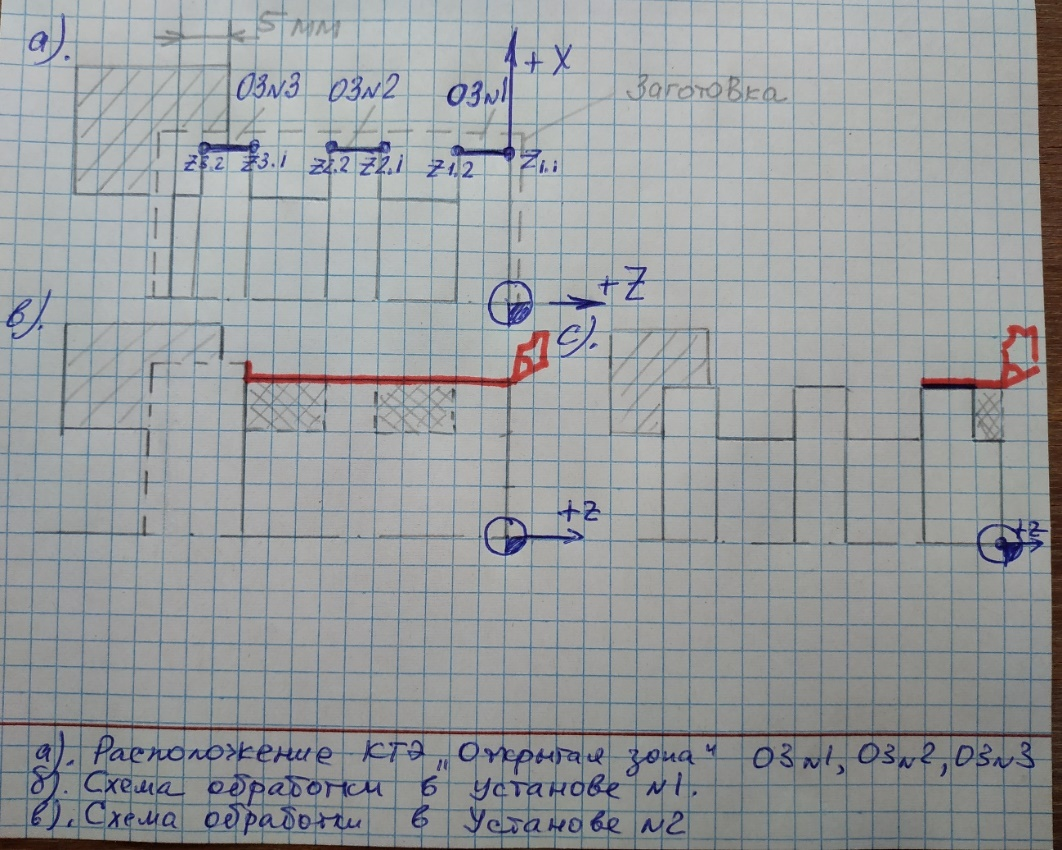 а).
5 мм
+X
ОЗN3 ОЗN2 ОЗN1
Заготовка
Z3.2 Z3.1 Z2.2 Z2.1 Z1.2 Z1.1
+Z
в).
с).
+Z
+Z
а). Расположение КТЭ „Открытая зона" ОЗN1, ОЗN2, ОЗN3
б). Схема обработки в Установе N1.
в). Схема обработки в Установе N2